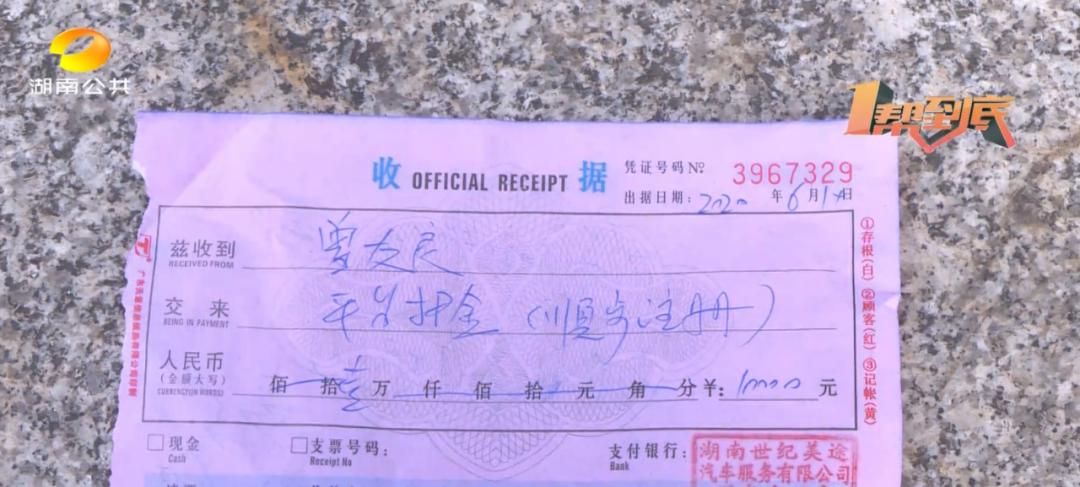 湖南公共
1帮到底
收 OFFICIAL RECEIPT 据
凭证号码 Nº 3967329
出据日期: 2020 年 6 月 1 日
兹收到 曾友民
RECEIVED FROM
交来 平台押金(顺步注册)
BEING IN PAYMENT
人民币
(金额大写)
佰 拾 壹 万 仟 佰 拾 元 角 分 ¥: 10000 元
①存根(白) ②顾客(红) ③记帐(黄)
□现金
Cash
□支票号码:
Receipt No
支付银行:
Bank
湖南世纪美途
汽车服务有限公司